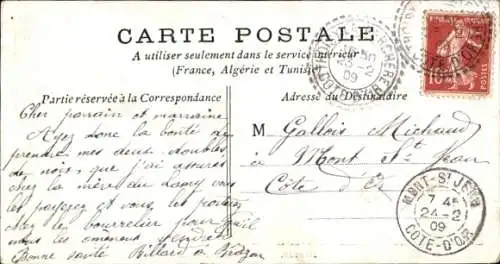 CARTE POSTALE
A utiliser seulement dans le service intérieur
(France, Algérie et Tunisie)
Partie réservée à la Correspondance
Adresse du Destinataire
Cher parrain et marraine
Ayez donc la bonté de
prendre mes deux doubles
de nois, que j'ai assurés
chez la mère du Lamy vous
les payez et vous les
chez le bourrelier pour
nous les vendredi
Bonne santé Billard à
M Gallois Michaud
à Mont St Jean
Côte d'Or
MONT-ST JEAN
7 45
24-2
09
COTE-D'OR
09
COTE-D'OR
POSTES